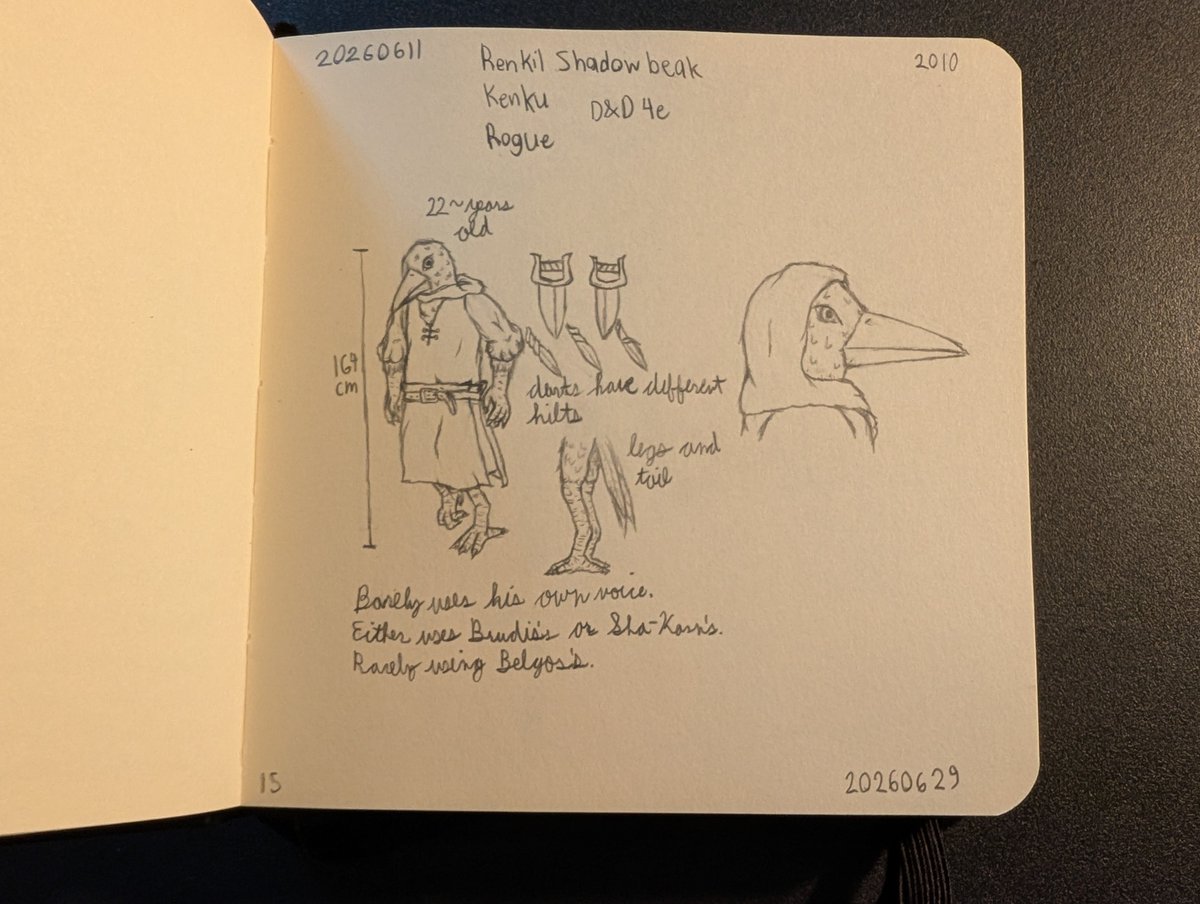 20260611
Renkil Shadowbeak
2010
Kenku
D&D 4e
Rogue
22~years
old
164
cm
darts have different
hilts
legs and
tail
Barely uses his own voice.
Either uses Brudis's or Sha-Karn's.
Rarely using Belgos's.
15
20260629